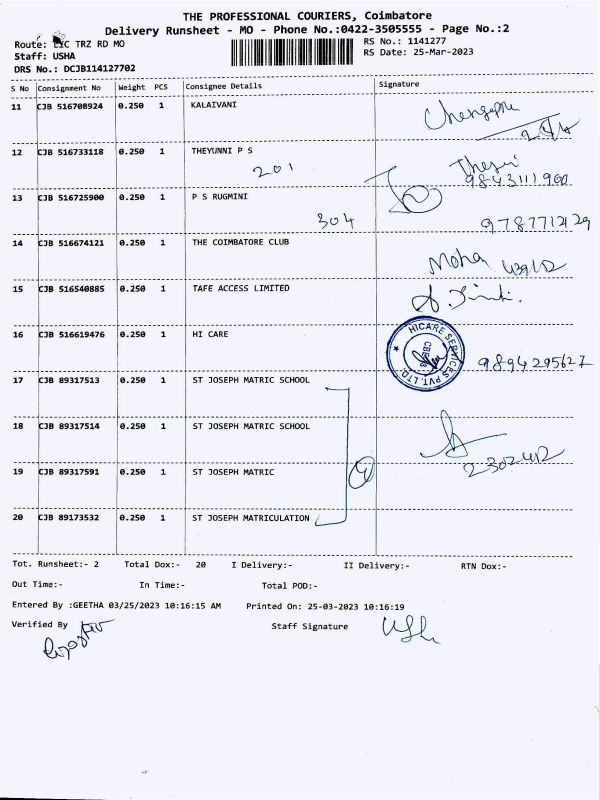 THE PROFESSIONAL COURIERS, Coimbatore
Delivery Runsheet - MO - Phone No.:0422-3505555 - Page No.:2
Route: TRZ RD MO
RS No.: 1141277
Staff: USHA
RS Date: 25-Mar-2023
DRS No.: DCJB114127702
S No Consignment No Weight PCS Consignee Details Signature
11 CJB 516708924 0.250 1 KALAIVANI
12 CJB 516733118 0.250 1 THEYUNNI P S
201
9843111900
13 CJB 516725900 0.250 1 P S RUGMINI
304
9787712129
14 CJB 516674121 0.250 1 THE COIMBATORE CLUB
Mohan
15 CJB 516540885 0.250 1 TAFE ACCESS LIMITED
16 CJB 516619476 0.250 1 HI CARE
HICARE SERVICES PVT. LTD.
9894295627
17 CJB 89317513 0.250 1 ST JOSEPH MATRIC SCHOOL
18 CJB 89317514 0.250 1 ST JOSEPH MATRIC SCHOOL
2302412
19 CJB 89317591 0.250 1 ST JOSEPH MATRIC
4
20 CJB 89173532 0.250 1 ST JOSEPH MATRICULATION
Tot. Runsheet:- 2 Total Dox:- 20 I Delivery:- II Delivery:- RTN Dox:-
Out Time:- In Time:- Total POD:-
Entered By :GEETHA 03/25/2023 10:16:15 AM Printed On: 25-03-2023 10:16:19
Verified By Staff Signature